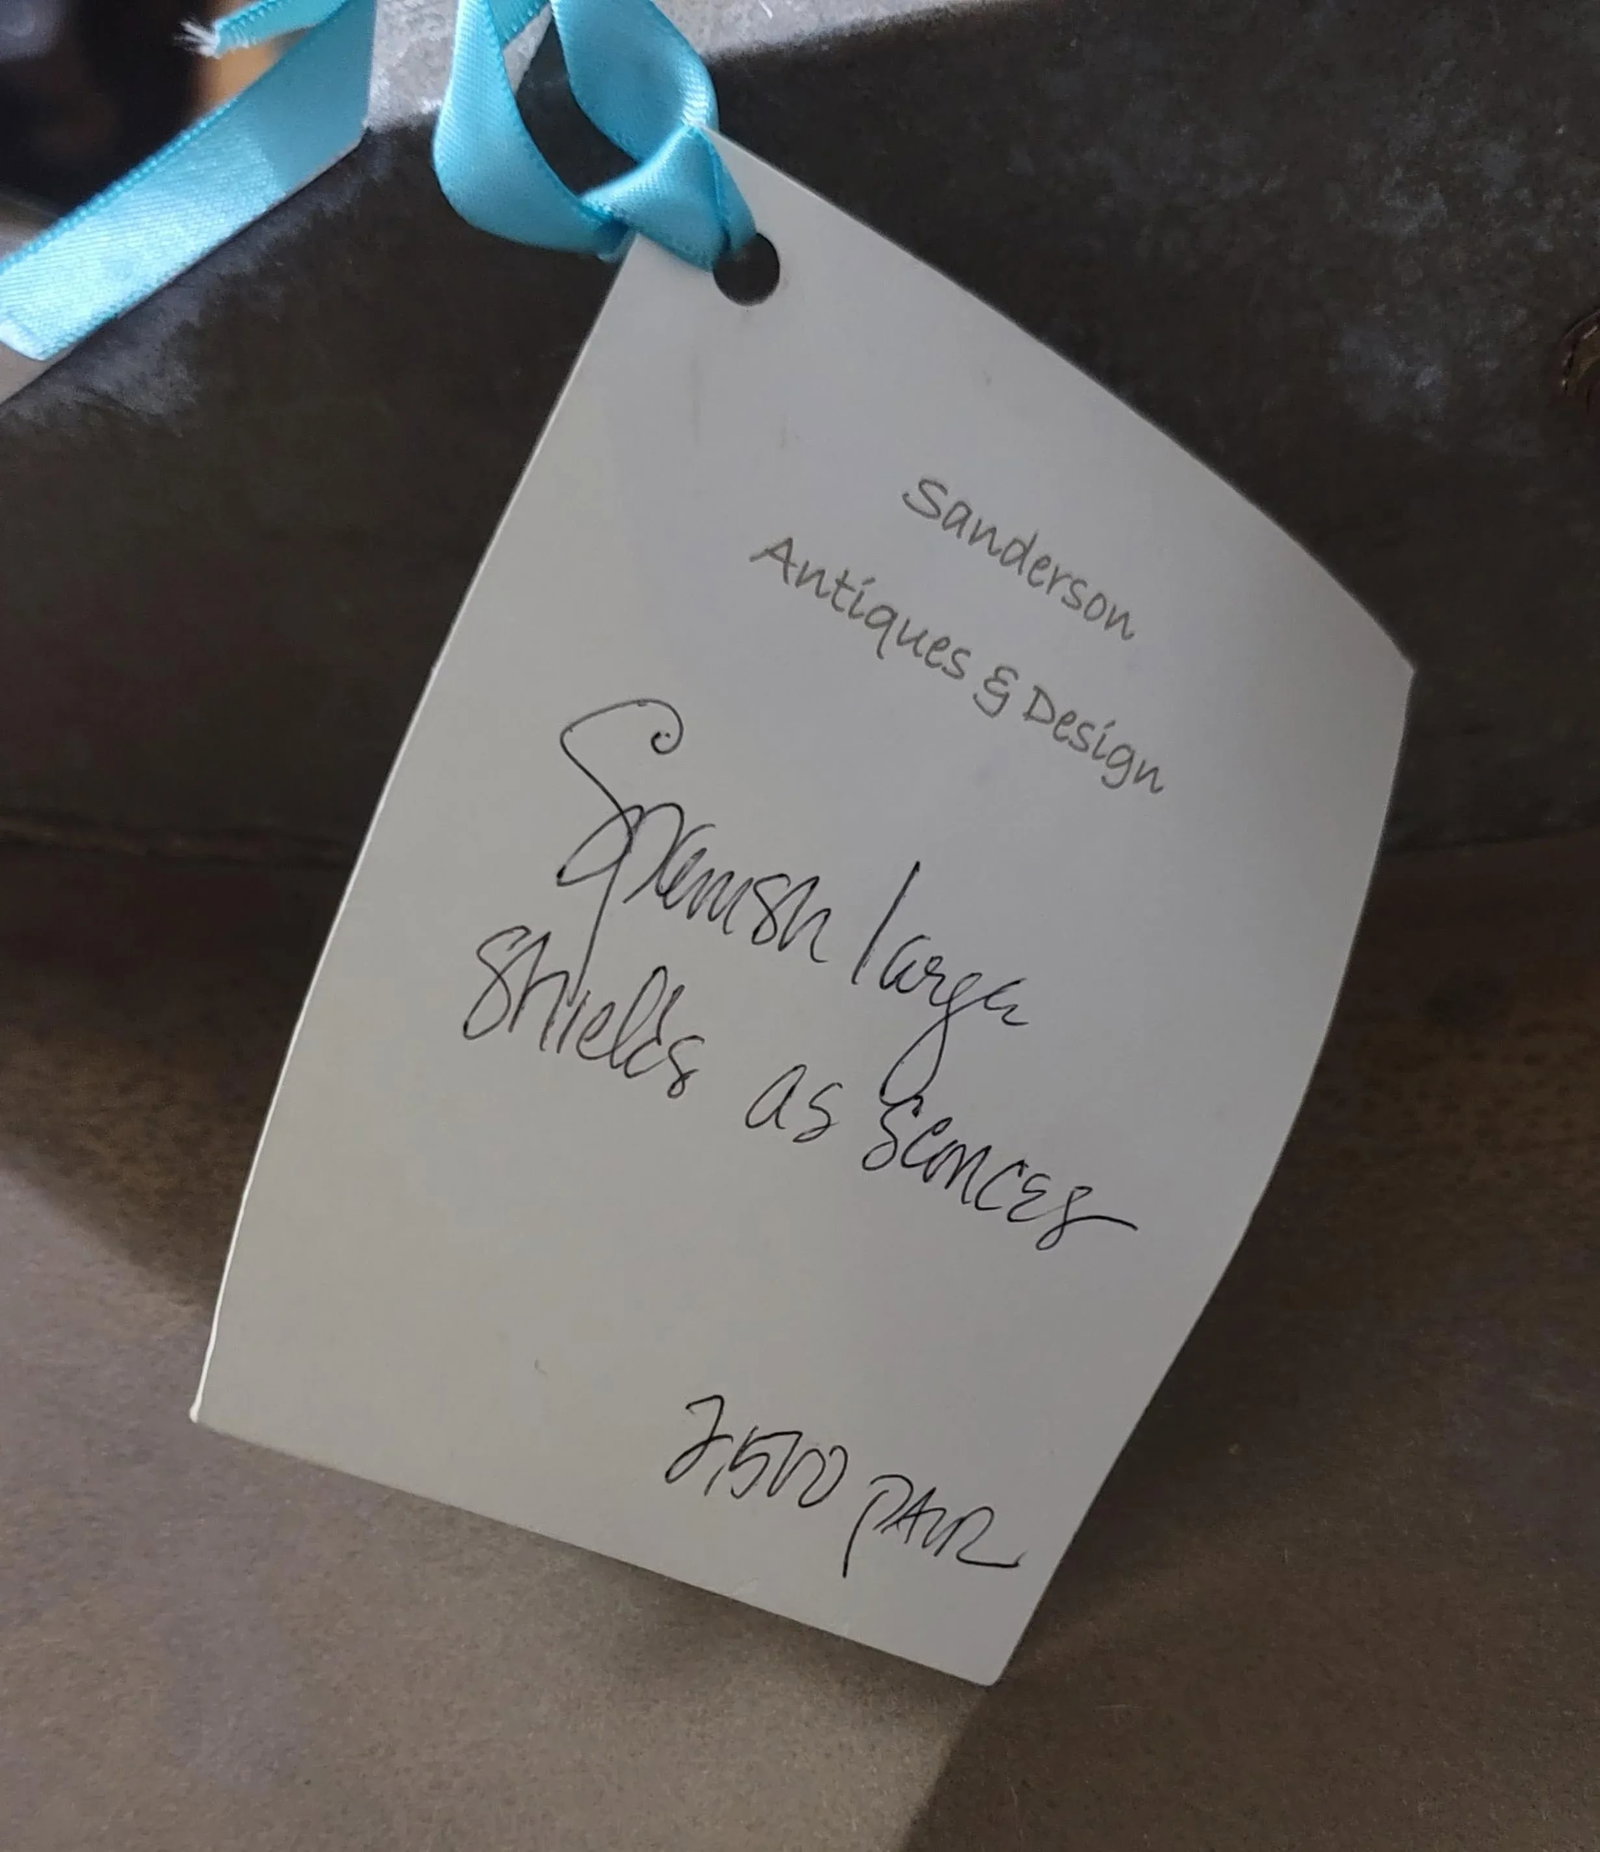 Sanderson
Antiques & Design
Spanish large
Shields as sconces
2,500 PAIR